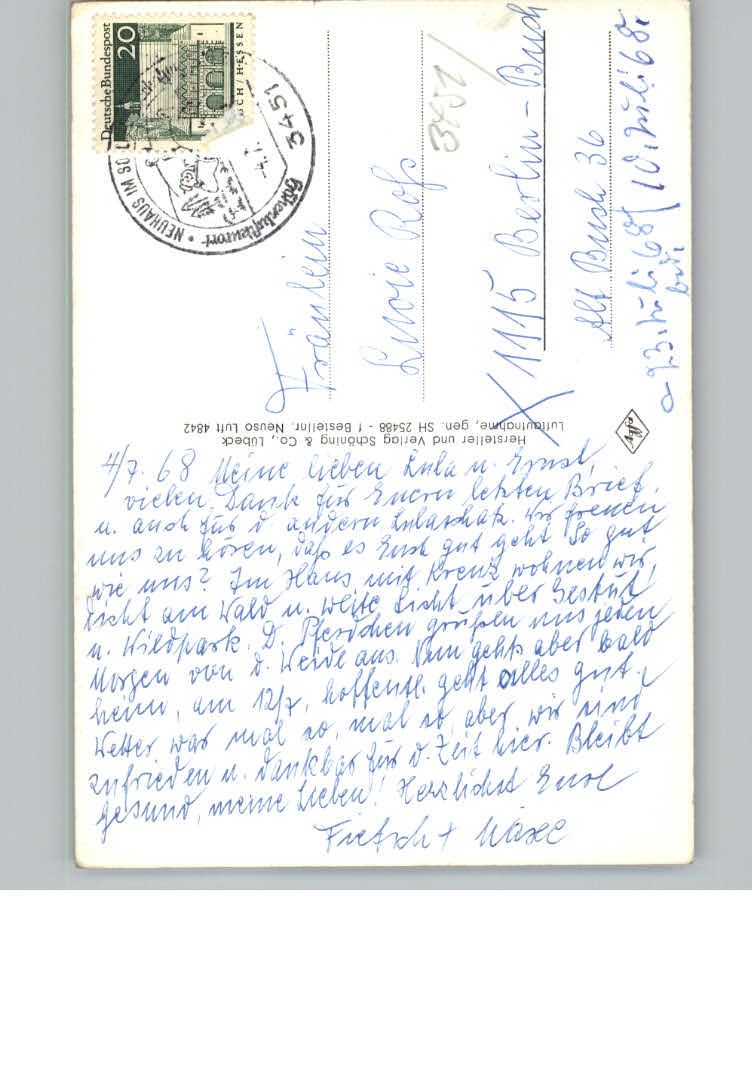 Deutsche Bundespost
20
SCH / HESSEN
3451
Höhenluftkurort
NEUHAUS IM SOL
-4.7.
3451
Fräulein
Rofs
1115 Berlin-Buch
Alt Buch 36
10. Juli 68
Hersteller und Verlag Schöning & Co., Lübeck
Luftaufnahme, gen. SH 25488 - f Bestellnr. Neuso Luft 4842
4/7. 68 Meine lieben Lula u. Ernst,
vielen Dank für Euern letzten Brief,
u. auch für d. andern Wir freuen
uns zu hören, daß es Euch gut geht. So gut
wie uns? Im Haus mit Kreuz wohnen wir,
dicht am Wald u. weite Sicht über Gestüt
u. Wildpark. D. Pferdchen grüßen uns jeden
Morgen von d. Weide aus. Nun gehts aber bald
heim, am 12/7, hoffentl. geht alles gut.
Wetter war mal so, mal so, aber wir sind
zufrieden u. dankbar für d. Zeit hier. Bleibt
gesund, meine Lieben! Herzlichst Eure